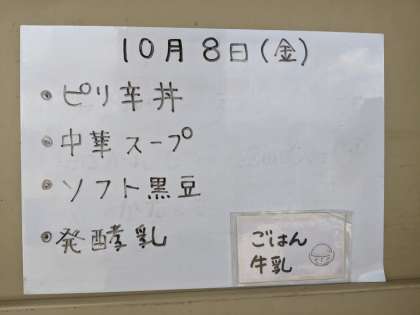 10月8日(金)
・ピリ辛丼
・中華スープ
・ソフト黒豆
・発酵乳
ごはん
牛乳